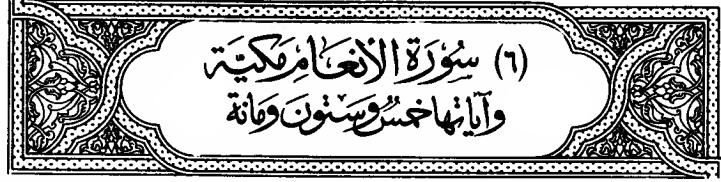 (٦) سُوْرَةُ الأَنْعَامِ مَكِيَّة
وَآيَاتُهَا خَمْسٌ وَسِتُّونَ وَمَائَة